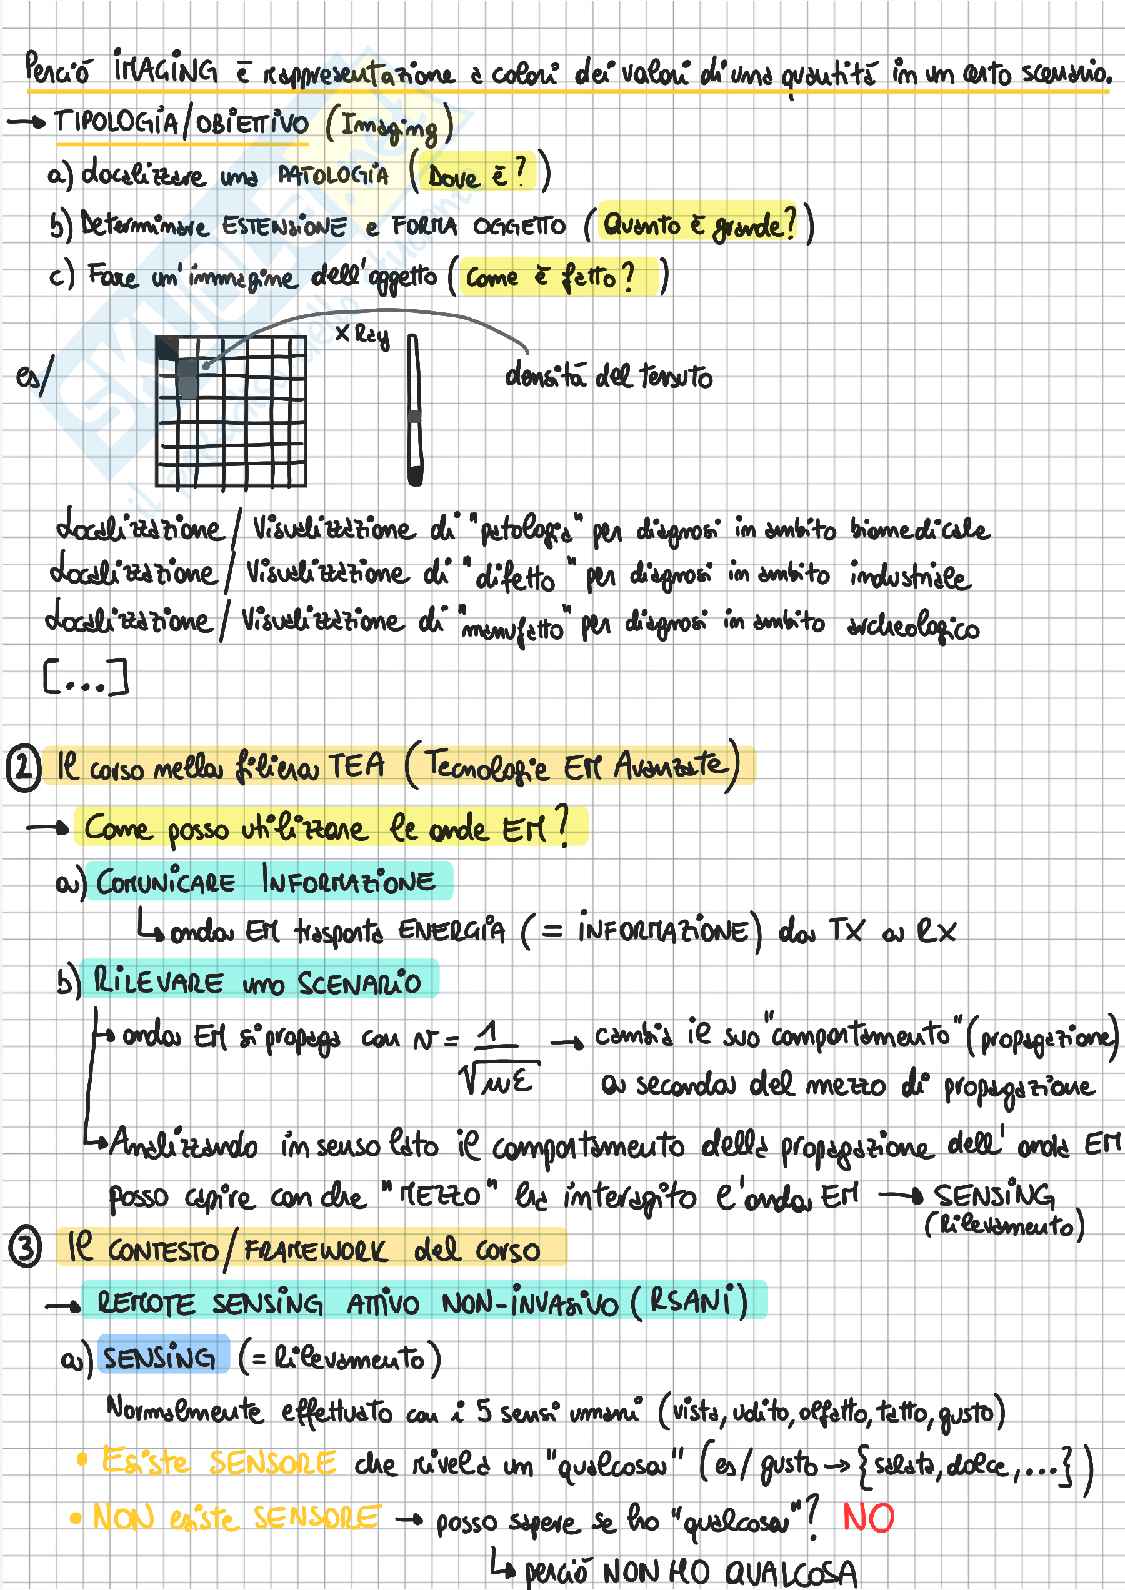 Perciò IMAGING è rappresentazione a colori dei valori di una quantità in un certo scenario.
→ TIPOLOGIA/OBIETTIVO (Imaging)
a) Localizzare una PATOLOGIA (Dove è?)
b) Determinare ESTENSIONE e FORMA OGGETTO (Quanto è grande?)
c) Fare un'immagine dell'oggetto (Come è fatto?)
es/
X Ray
densità del tessuto
Localizzazione / Visualizzazione di "patologia" per diagnosi in ambito biomedicale
Localizzazione / Visualizzazione di "difetto" per diagnosi in ambito industriale
Localizzazione / Visualizzazione di "manufatto" per diagnosi in ambito archeologico
[...]
② Il corso nella filiera TEA (Tecnologie EM Avanzate)
→ Come posso utilizzare le onde EM?
a) COMUNICARE INFORMAZIONE
↳ onda EM trasporta ENERGIA (= INFORMAZIONE) da TX a RX
b) RILEVARE uno SCENARIO
→ onda EM si propaga con v = 1/√με → cambia il suo "comportamento" (propagazione)
a seconda del mezzo di propagazione
→ Analizzando in senso lato il comportamento della propagazione dell'onda EM
posso capire con che "MEZZO" ha interagito l'onda EM → SENSING
(Rilevamento)
③ Il CONTESTO/FRAMEWORK del corso
→ REMOTE SENSING ATTIVO NON-INVASIVO (RSANI)
a) SENSING (= Rilevamento)
Normalmente effettuato con i 5 sensi umani (vista, udito, olfatto, tatto, gusto)
• Esiste SENSORE che rivela un "qualcosa" (es/ gusto → {salato, dolce, ...})
• NON esiste SENSORE → posso sapere se ho "qualcosa"? NO
↳ perciò NON HO QUALCOSA